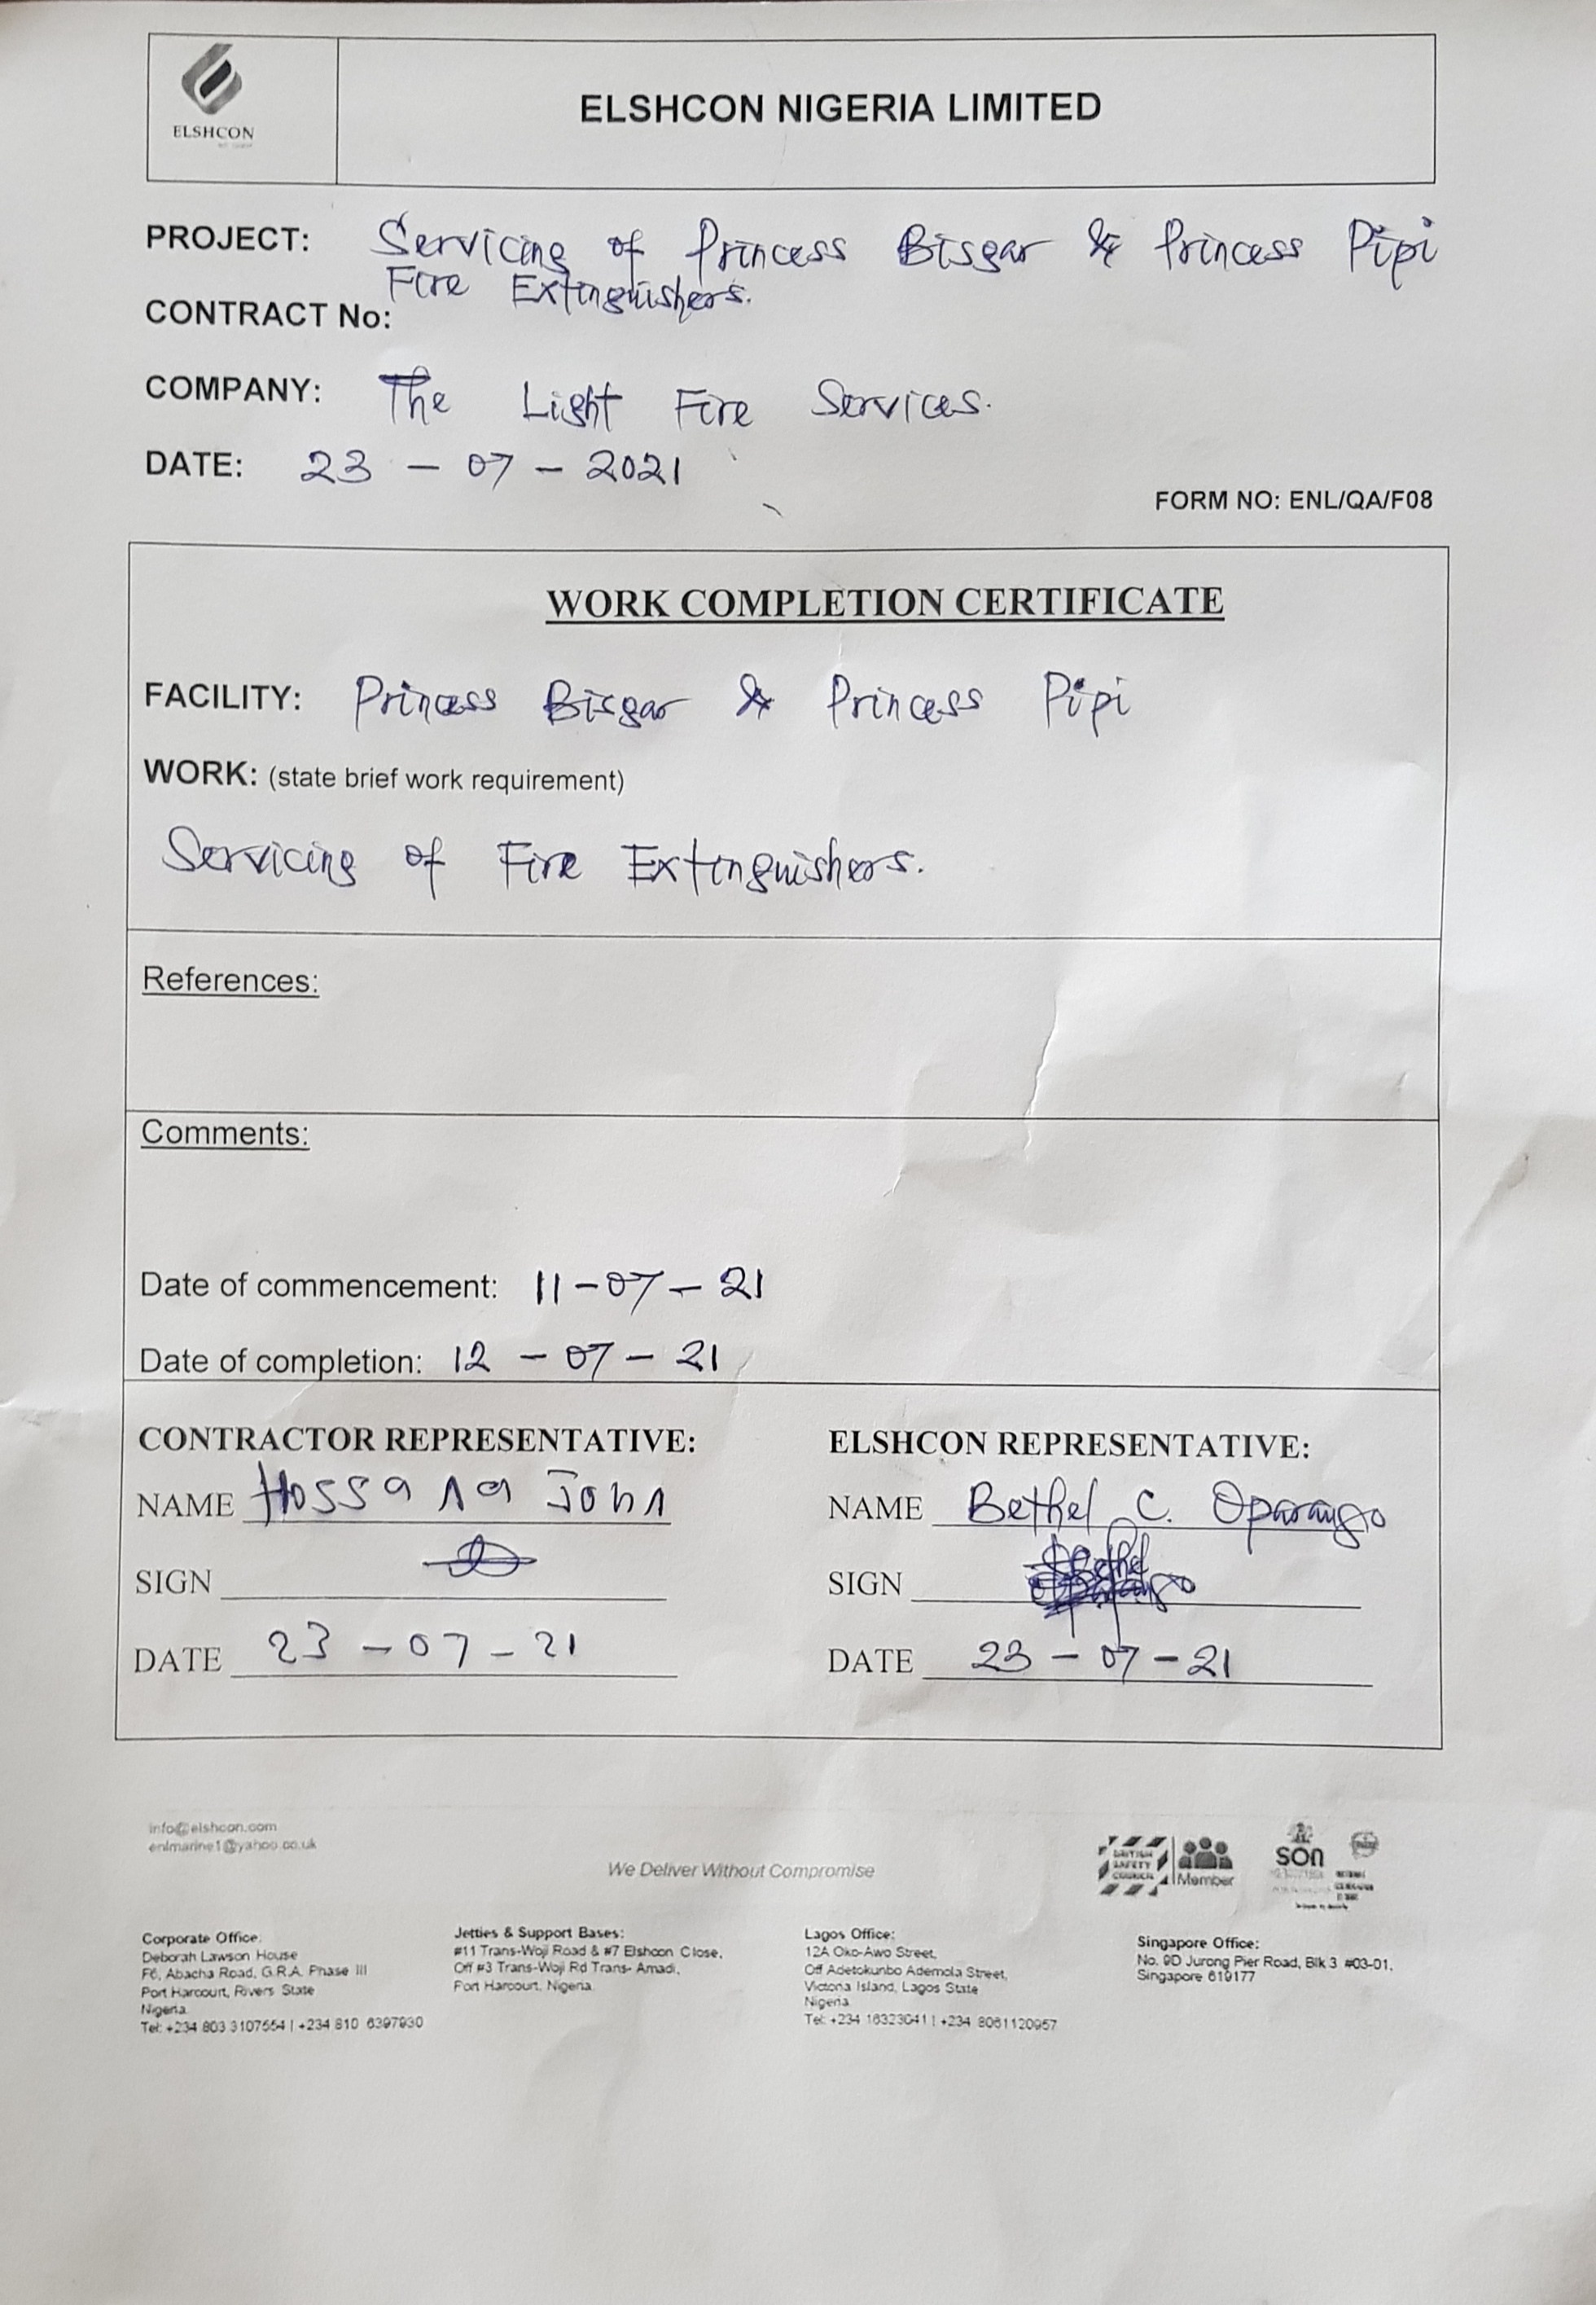 ELSHCON
ELSHCON NIGERIA LIMITED
PROJECT: Servicing of Princess Bisgar & Princess Pipi
Fire Extinguishers.
CONTRACT No:
COMPANY: The Light Fire Services.
DATE: 23 - 07 - 2021
FORM NO: ENL/QA/F08
WORK COMPLETION CERTIFICATE
FACILITY: Princess Bisgar & Princess Pipi
WORK: (state brief work requirement)
Servicing of Fire Extinguishers.
References:
Comments:
Date of commencement: 11-07-21
Date of completion: 12 - 07 - 21
CONTRACTOR REPRESENTATIVE:
NAME Hossana John
SIGN
DATE 23 - 07 - 21
ELSHCON REPRESENTATIVE:
NAME Bethel C. Oparaugo
SIGN
DATE 23 - 07 - 21
info@elshcon.com
enlmarine1@yahoo.co.uk
We Deliver Without Compromise
BRITISH
SAFETY
COUNCIL
Member
SON
Corporate Office:
Deborah Lawson House
F6, Abacha Road, G.R.A. Phase III
Port Harcourt, Rivers State
Nigeria
Tel: +234 803 3107554 | +234 810 6397930
Jetties & Support Bases:
#11 Trans-Woji Road & #7 Elshcon Close,
Off #3 Trans-Woji Rd Trans- Amadi,
Port Harcourt, Nigeria.
Lagos Office:
12A Oko-Awo Street,
Off Adetokunbo Ademola Street,
Victoria Island, Lagos State
Nigeria
Tel: +234 16323041 | +234 8061120957
Singapore Office:
No. 9D Jurong Pier Road, Blk 3 #03-01,
Singapore 619177